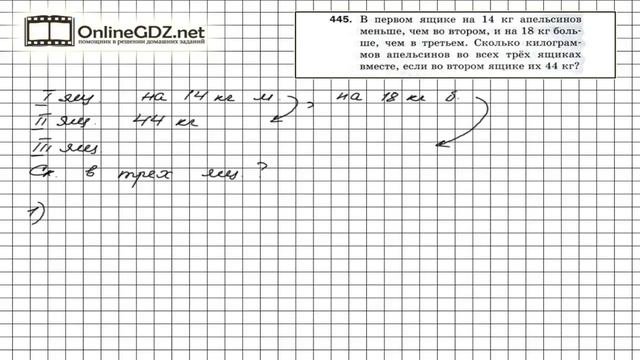 OnlineGDZ.net
помощник в решении домашних заданий
445. В первом ящике на 14 кг апельсинов
меньше, чем во втором, и на 18 кг боль-
ше, чем в третьем. Сколько килограм-
мов апельсинов во всех трёх ящиках
вместе, если во втором ящике их 44 кг?
I ящ. на 14 кг м , на 18 кг б.
II ящ. 44 кг
III ящ.
Ск. в трех ящ ?
1)